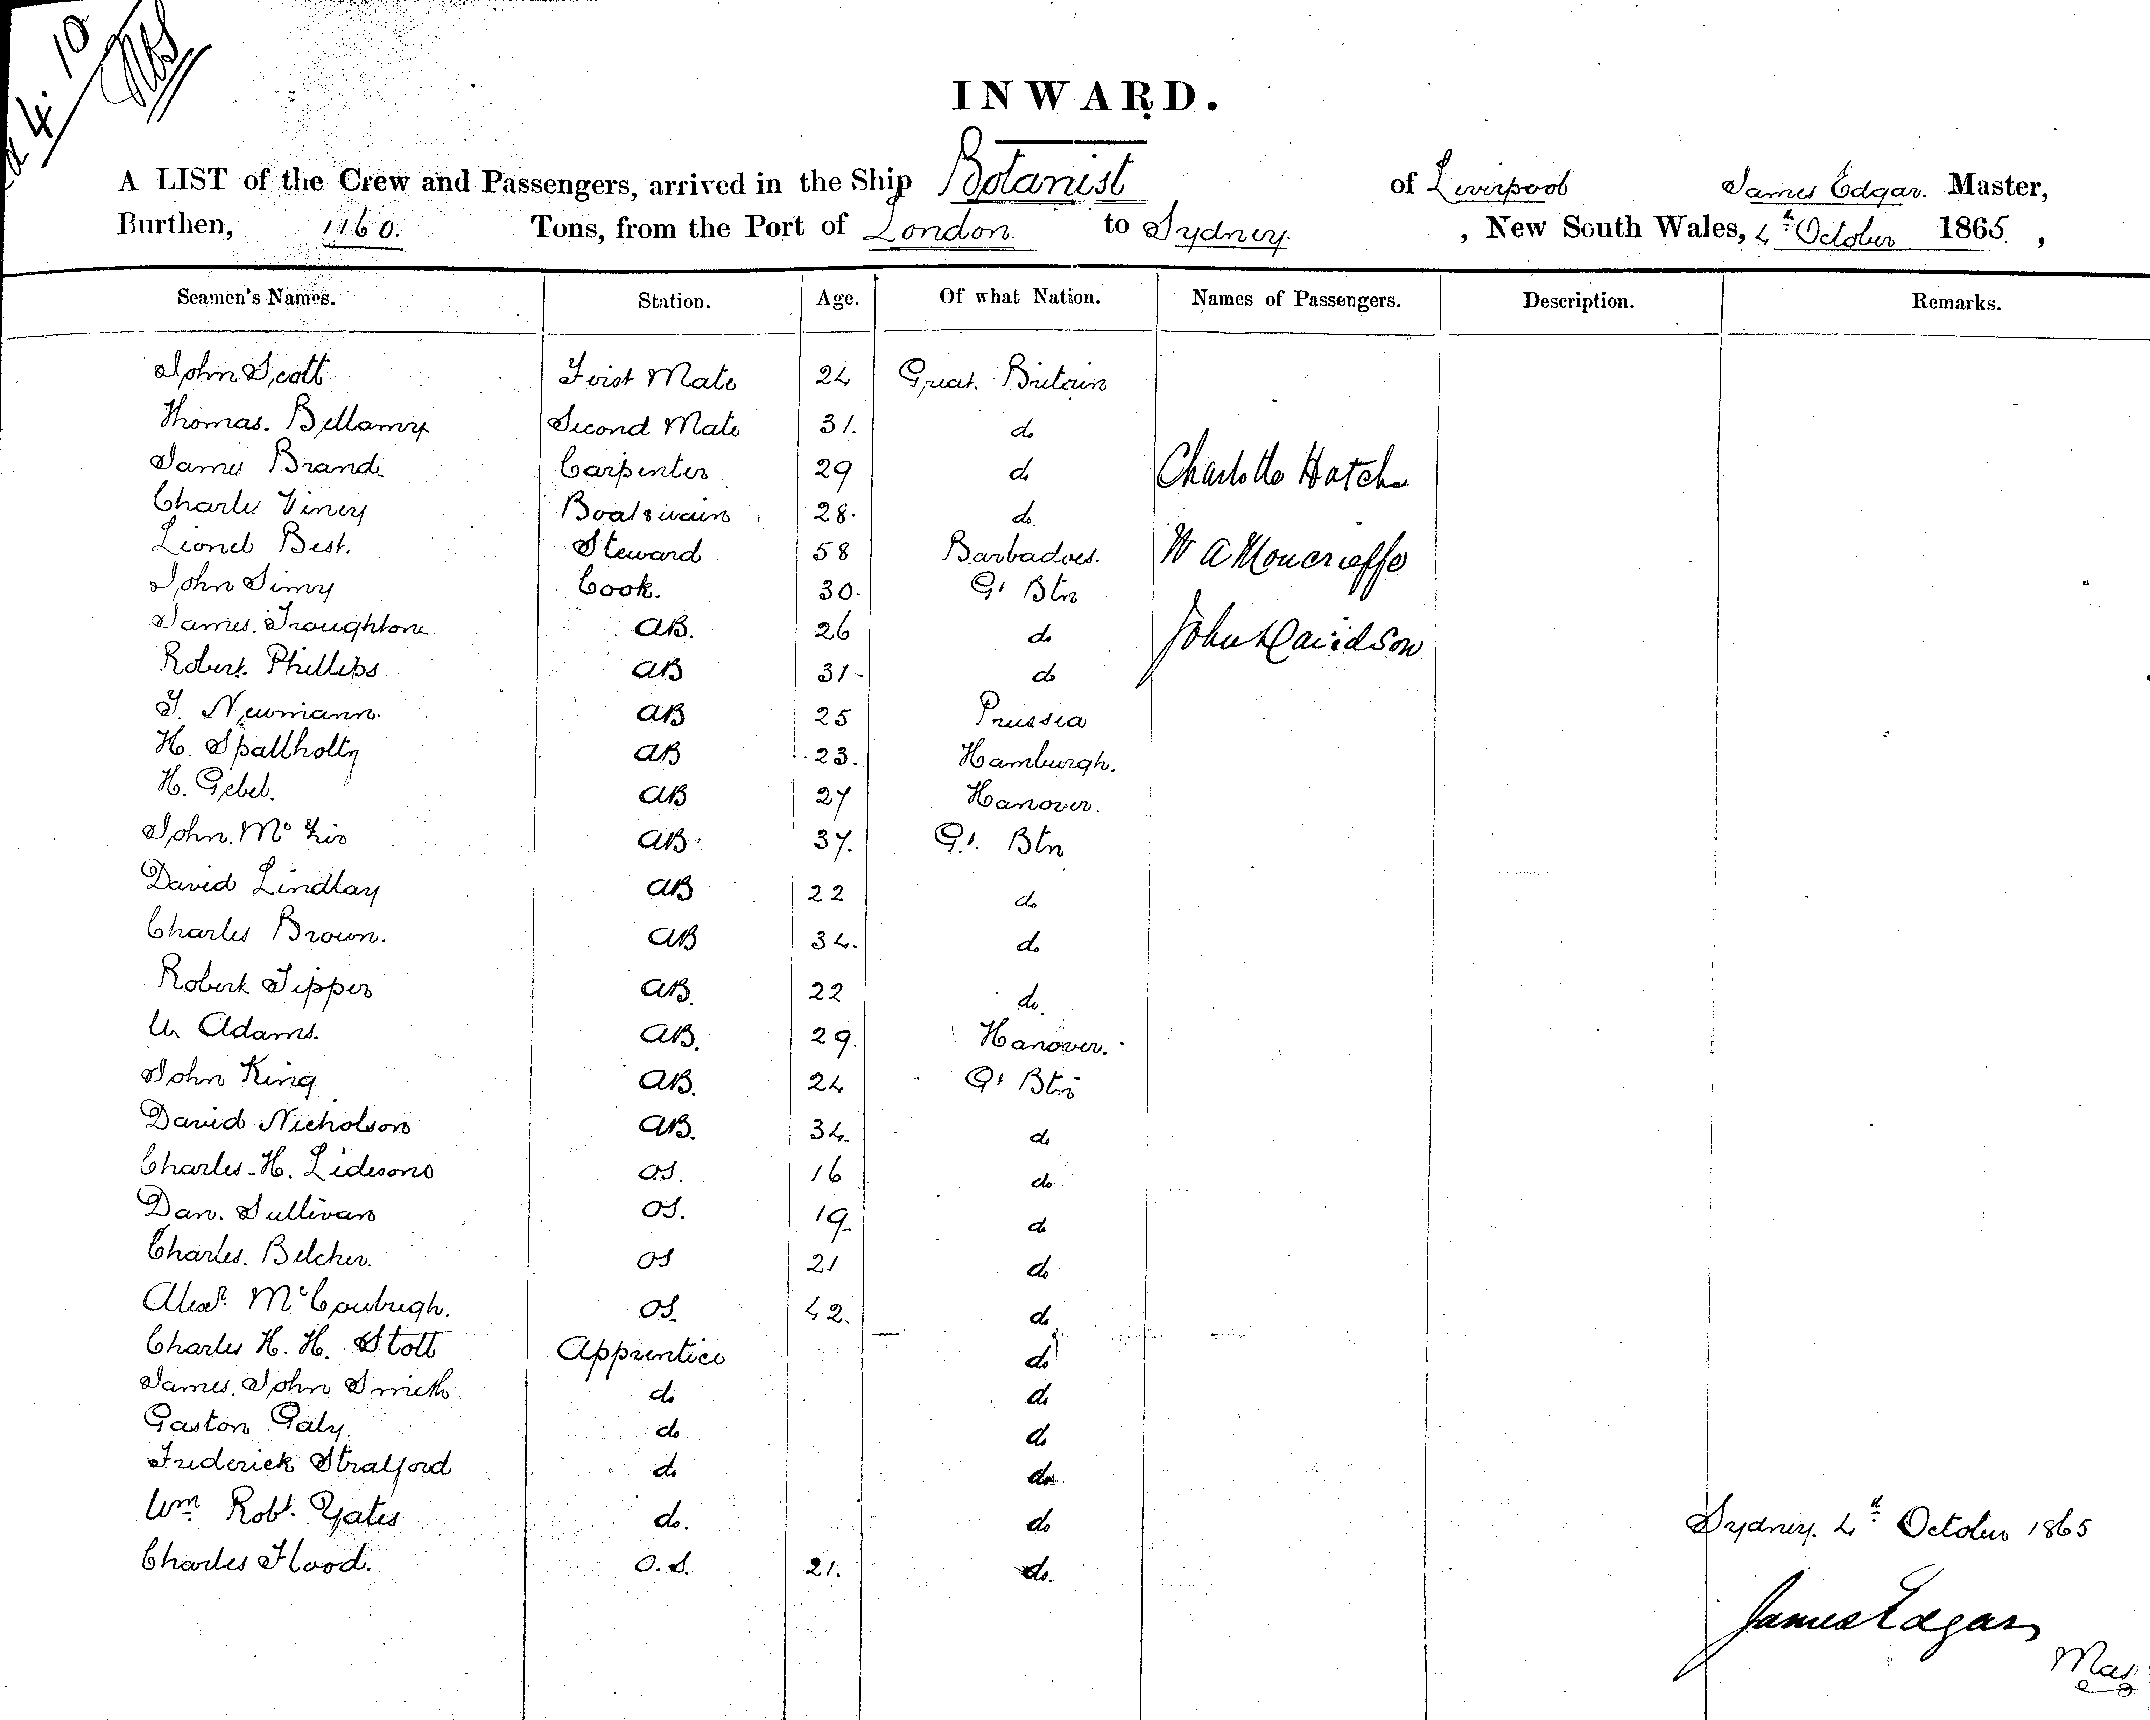 4. 10
INWARD.
A LIST of the Crew and Passengers, arrived in the Ship Botanist of Liverpool James Edgar. Master,
Burthen, 1160. Tons, from the Port of London to Sydney. , New South Wales, 4th October 1865. ,
Seamen's Names. Station. Age. Of what Nation. Names of Passengers. Description. Remarks.
John Scott First Mate 24 Great Britain
Thomas. Bellamy Second Mate 31. do
James Brand Carpenter 29 do Charlotte Hatch
Charles Viney Boatswain 28. do
Lionel Best. Steward 58 Barbadoes. W A Moncrieffe
John Simy Cook. 30. Gt Btn
James. Troughton AB. 26 do John Davidson
Robert Phillips AB 31 do
Neumann. AB 25 Prussia
H. Spallholtz AB 23. Hamburgh.
H. Gebel. AB 27 Hanover.
John. Mc AB 37. Gt. Btn
David Lindlay AB 22 do
Charles Brown. AB 34. do
Robert Tipper AB. 22 do.
Adams. AB. 29. Hanover.
John King AB. 24 Gt Btn
David Nicholson AB. 34. do
Charles. H. OS. 16 do
Dan. Sullivan OS. 19. do
Charles. Belcher. OS 21 do
Alexr. McCoubrigh. OS. 42. do
Charles H. H. Stott Apprentice do
James. John Smith do do
Gaston Galy do do
Frederick Stratford do do
Wm Robt. Yates do. do
Charles Flood. O.S. 21. do.
Sydney. 4th October 1865
James Edgar
Mas